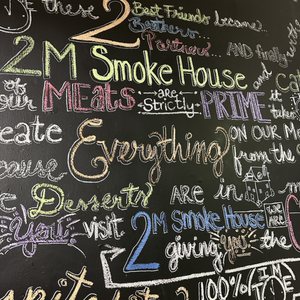 these 2 Best Friends became...
Brothers...
Partners... AND finally
2M Smoke House and
of our MEATS are -Strictly- PRIME it take
eate Everything ON OUR M
cause from the
e Desserts ARE in
You visit 2M Smoke House WE ARE
giving you the
100% TIM